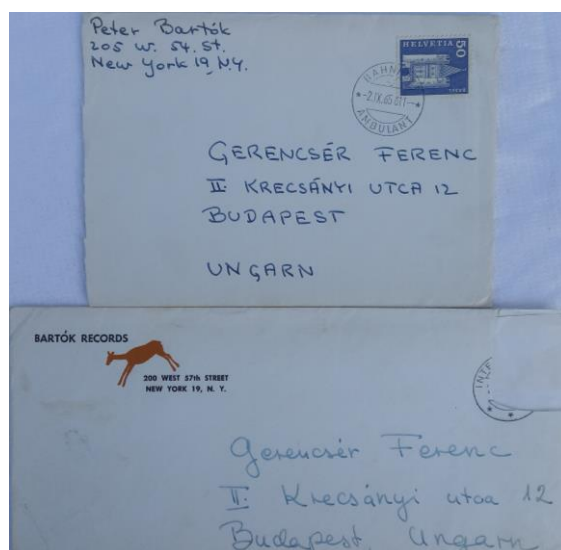 Peter Bartók
205 W. 54. St.
New York 19, N.Y.
HELVETIA 50
BAHN
-2.IX.65
AMBULANT
GERENCSÉR FERENC
II. KRECSÁNYI UTCA 12
BUDAPEST
UNGARN
BARTÓK RECORDS
200 WEST 57th STREET
NEW YORK 19, N. Y.
Gerencsér Ferenc
II. Krecsányi utca 12
Budapest Ungarn